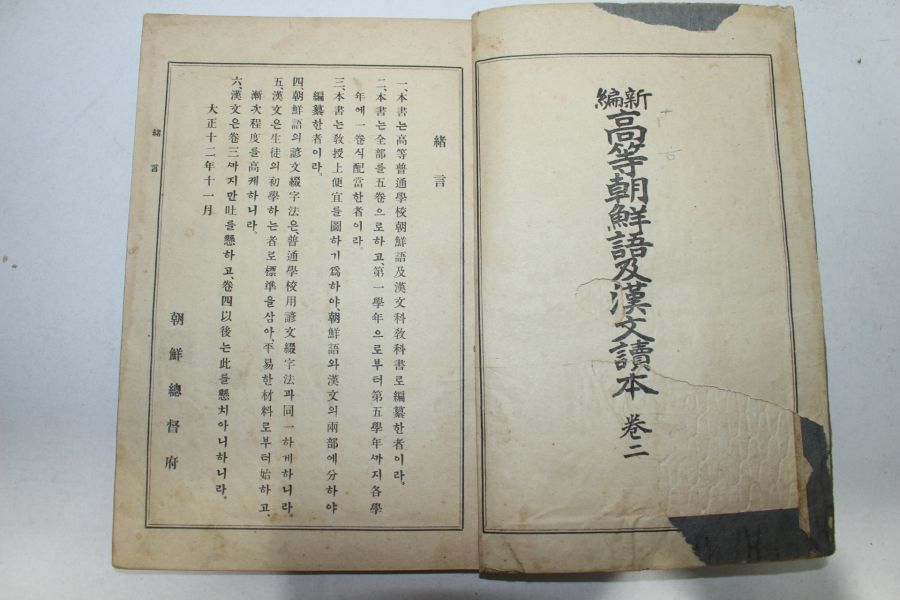 新編
高等朝鮮語及漢文讀本 卷二
緖言
一、本書는高等普通學校朝鮮語及漢文科敎科書로編纂한者이라。
二、本書는全部를五卷으로하고、第一學年으로부터第五學年ᄭᅡ지各學
年에一卷式配當한者이라。
三、本書는敎授上便宜를圖하기爲하야、朝鮮語와漢文의兩部에分하야
編纂한者이라。
四、朝鮮語의諺文綴字法은、普通學校用諺文綴字法과同一하게하니라。
五、漢文은生徒의初學하는者로標準을삼아、平易한材料로부터始하고、
漸次程度를高케하니라。
六、漢文은卷三ᄭᅡ지만吐를懸하고、卷四以後는此를懸치아니하니라。
大正十二年十一月
朝鮮總督府
緖言